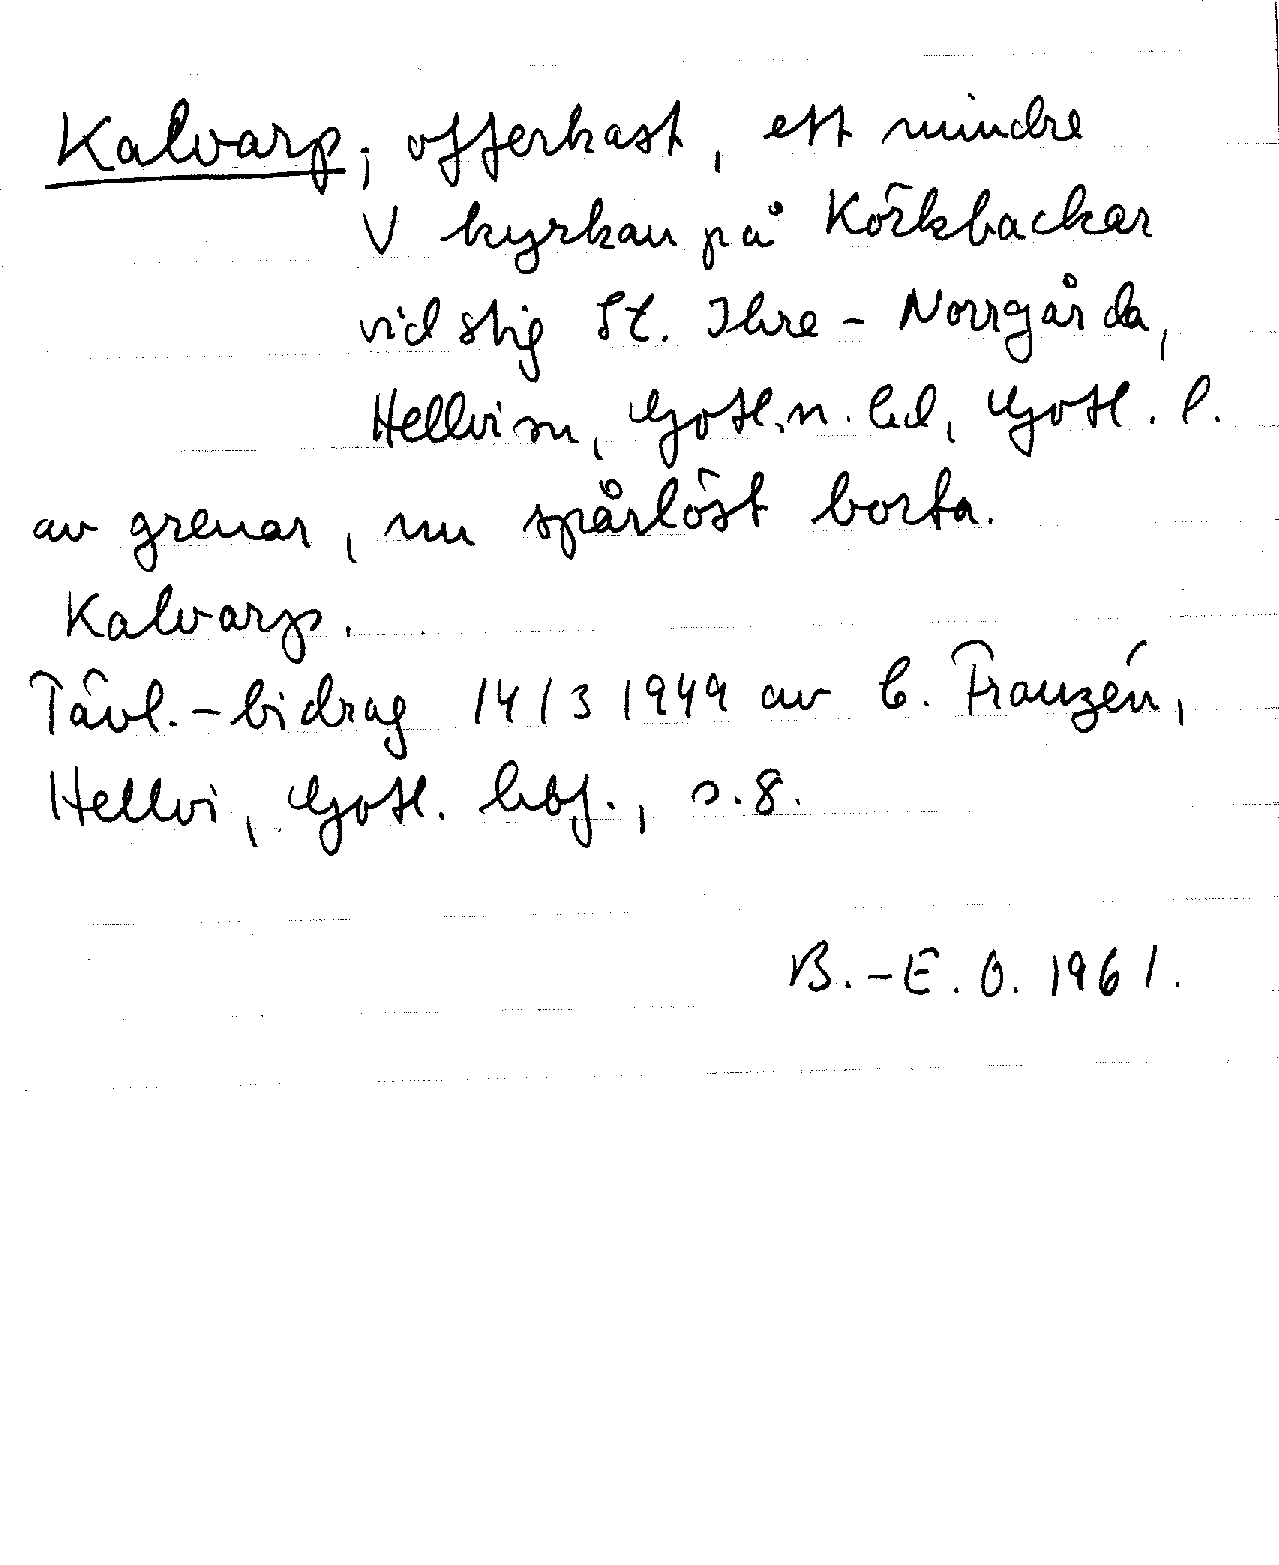 Kalvarp; offerkast, ett mindre
V kyrkan på Körkbackar
vid stig St. Ihre - Norrgårda,
Hellvi sn, Gotl. n. hd, Gotl. l.
av grenar, nu spårlöst borta.
Kalvarp.
Tävl.-bidrag 14/3 1949 av C. Franzén,
Hellvi, Gotl. hbf., s. 8.
B.-E. O. 1961.